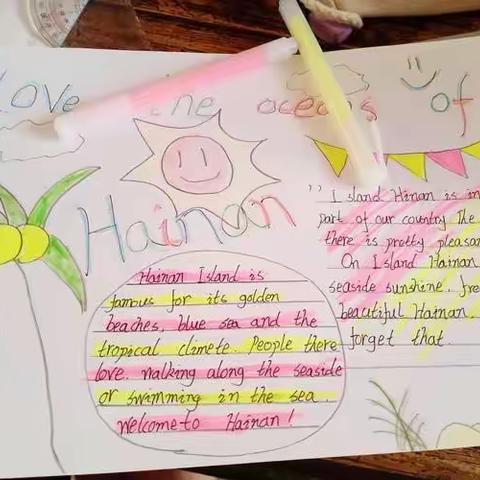 Love the oceans of
Hainan
Hainan Island is
famous for its golden
beaches, blue sea and the
tropical climete. People there
love. malking along the seaside
or swimming in the sea.
Welcome to Hainan!
" Island Hinan is in
part of our country The
there is pretty pleasan
On Island Hainan
seaside sunshine, fre
beautiful Hainan.
forget that.